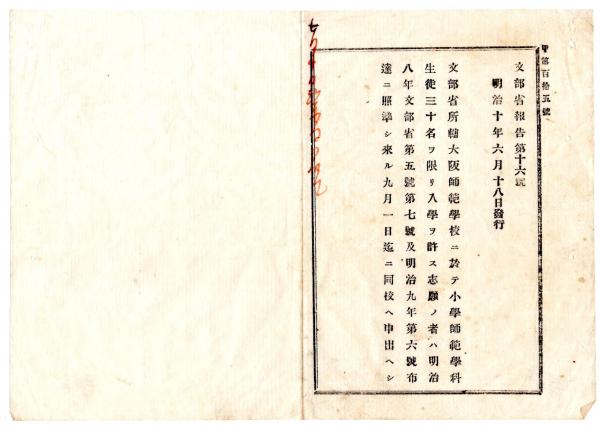 甲第百拾五號
文部省報告第十六號
明治十年六月十八日發行
文部省所轄大阪師範學校ニ於テ小學師範學科
生徒三十名ヲ限リ入學ヲ許ス志願ノ者ハ明治
八年文部省第五號第七號及明治九年第六號布
達ニ照準シ來ル九月一日迄ニ同校ヘ申出ヘシ